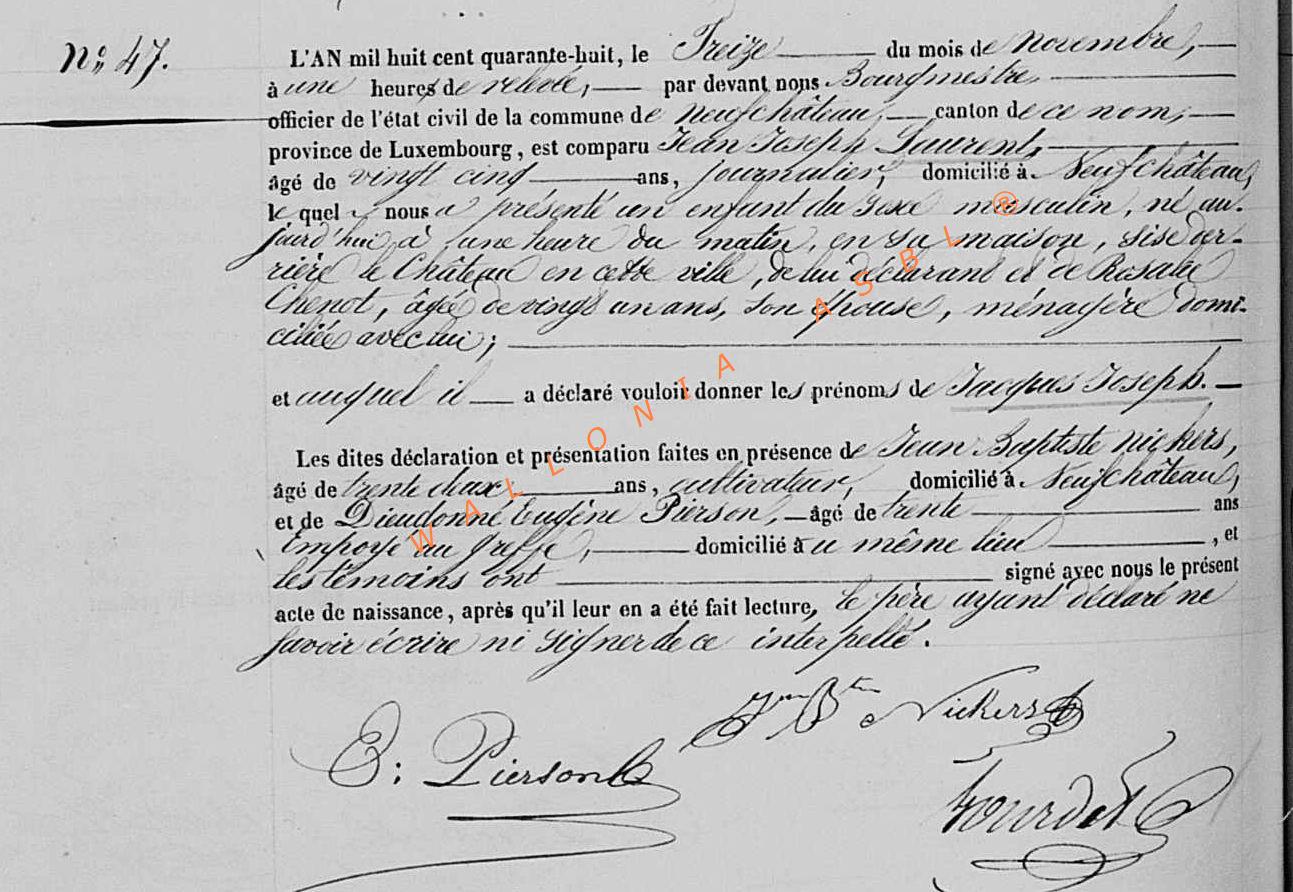 N.º 47.
L'AN mil huit cent quarante-huit, le Treize du mois de novembre,
à une heures de relevée, par devant nous Bourgmestre,
officier de l'état civil de la commune de Neufchâteau, canton de ce nom,
province de Luxembourg, est comparu Jean Joseph Laurent,
âgé de vingt cinq ans, journalier, domicilié à Neufchâteau,
le quel nous a présenté un enfant du sexe masculin, né au-
jourd'hui, à une heure du matin, en sa maison, sise der-
rière le Château en cette ville, de lui déclarant et de Rosalie
Chenot, âgée de vingt un ans, son épouse, ménagère domi-
ciliée avec lui;
et auquel il a déclaré vouloir donner les prénoms de Jacques Joseph.
Les dites déclaration et présentation faites en présence de Jean Baptiste Nickers,
âgé de trente deux ans, cultivateur, domicilié à Neufchâteau,
et de Dieudonné Eugène Pierson, âgé de trente ans
Employé au Greffe, domicilié au même lieu, et
les témoins ont signé avec nous le présent
acte de naissance, après qu'il leur en a été fait lecture, le père ayant déclaré ne
savoir écrire ni signer de ce interpellé.
Jean Btte Nickers
E: Pierson
Tourdet
WALLONIA ASBL ®